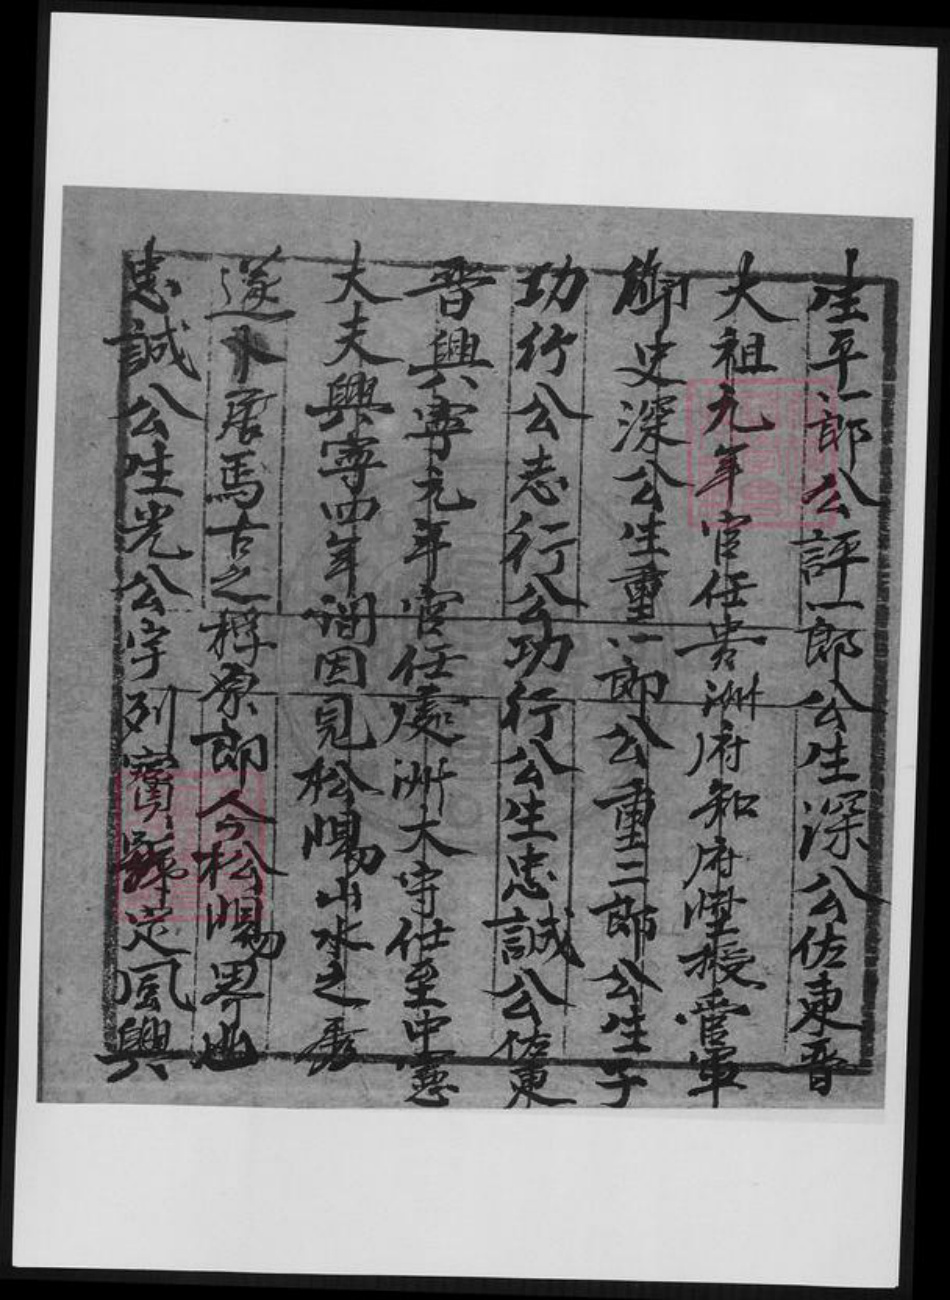 生平一郎公評一郎公生深公佐東晋
大祖九年官任貴洲府知府陞授官軍
御史深公生重一郎公重二郎公生子
功行公志行公功行公生忠誠公佐東
晋興寧元年官任處洲大守任至中憲
大夫興寧四年调因見松陽山水之秀
遂卜居焉古之梓原郎今松陽界也
忠誠公生光公字列賓號定風興